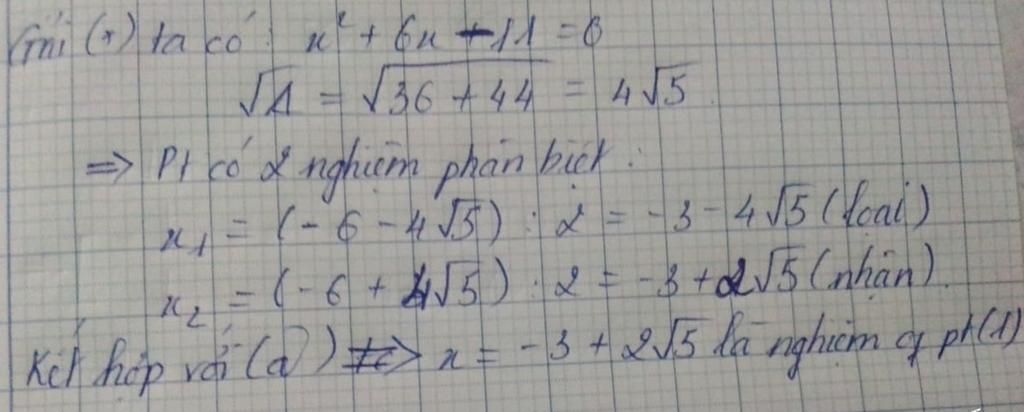 Giải (*) ta có: x² + 6x - 11 = 0
√Δ = √36 + 44 = 4√5
=> Pt có 2 nghiệm phân biệt:
x₁ = (-6 - 4√5) : 2 = -3 - 4√5 (loại)
x₂ = (-6 + 4√5) : 2 = -3 + 2√5 (nhận).
Kết hợp với (2) => x = -3 + 2√5 là nghiệm of pt (1)